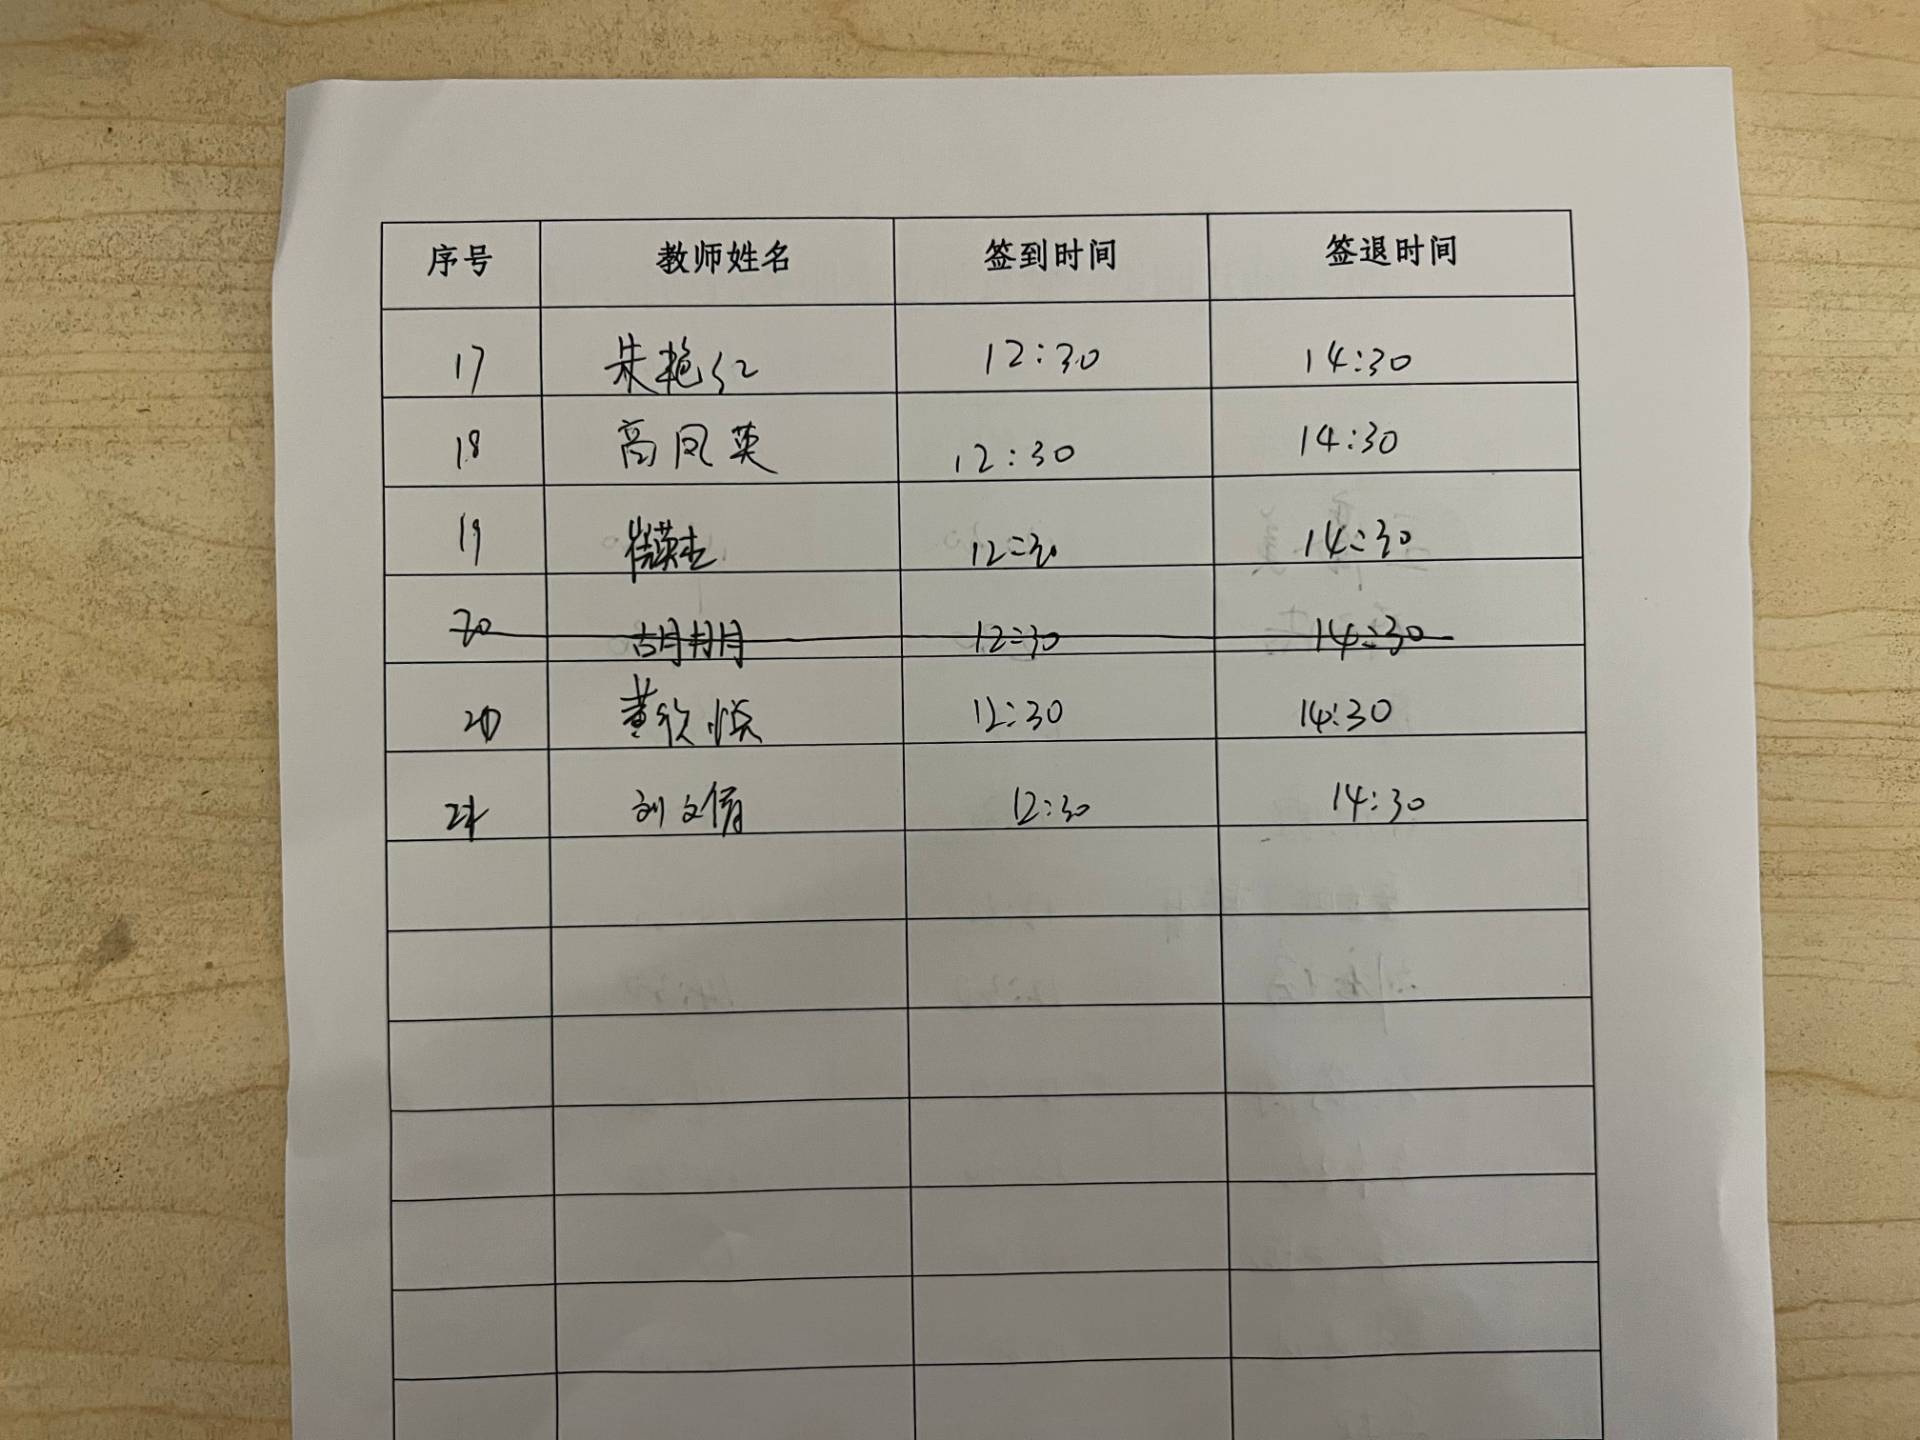 序号 教师姓名 签到时间 签退时间
17 朱艳红 12:30 14:30
18 高凤英 12:30 14:30
19 崔英杰 12:30 14:30
20 胡月月 12:30 14:30
20 黄欣悦 12:30 14:30
21 刘文倩 12:30 14:30